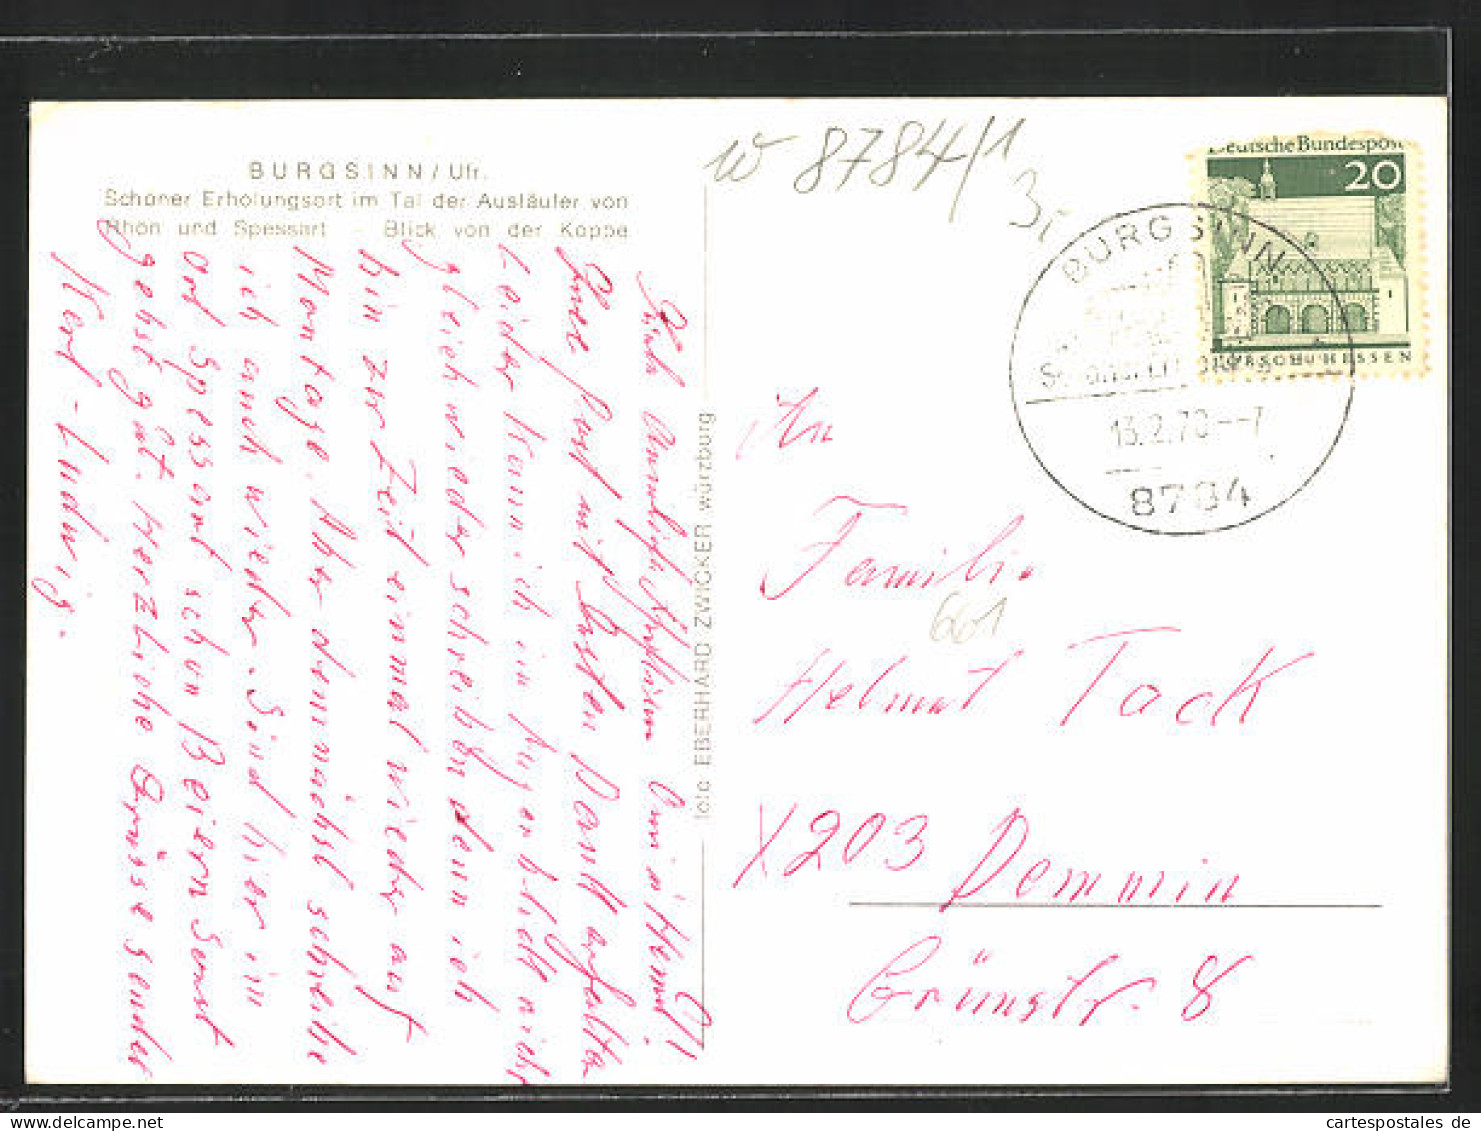 BURGSINN/Ufr.
Schöner Erholungsort im Tal der Ausläufer von
Rhön und Spessart - Blick von der Koppe
foto EBERHARD ZWICKER würzburg
Post mit besten Dank erhalten
Leider kann ich im Augenblick nicht
gleich wieder schreiben denn ich
bin zur Zeit einmal wieder auf
Montage. Aber demnächst schreibe
ich auch wieder. Sind hier im
Ort Spessart schon Beiern Sonst
gehst gut. Herzliche Grüsse sendet
Karl-Ludwig.
w 8784/1
3i
Deutsche Bundespost
20
LORSCH/HESSEN
BURGSINN
13.2.70--7
8784
An
Familie
661
Helmut Tack
X203 Demmin
Grünstr. 8
cartespostales.de